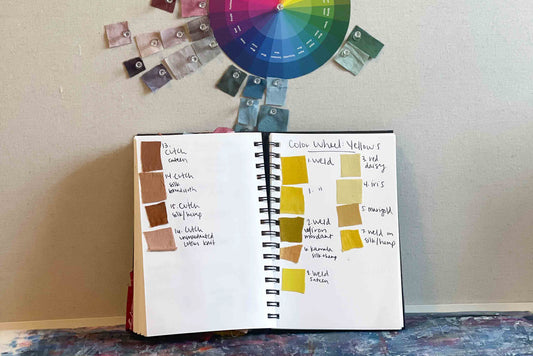 13.
Cutch
sateen
14. Cutch
silk
15. Cutch
silk/hemp
16. Cutch
Color Wheel: Yellows
1. Weld
1. "
2. Weld
w/iron
mordant
6. Kamala
silk+hemp
8. Weld
sateen
3. red
daisy
4. iris
5. marigold
7. weld on
silk/hemp